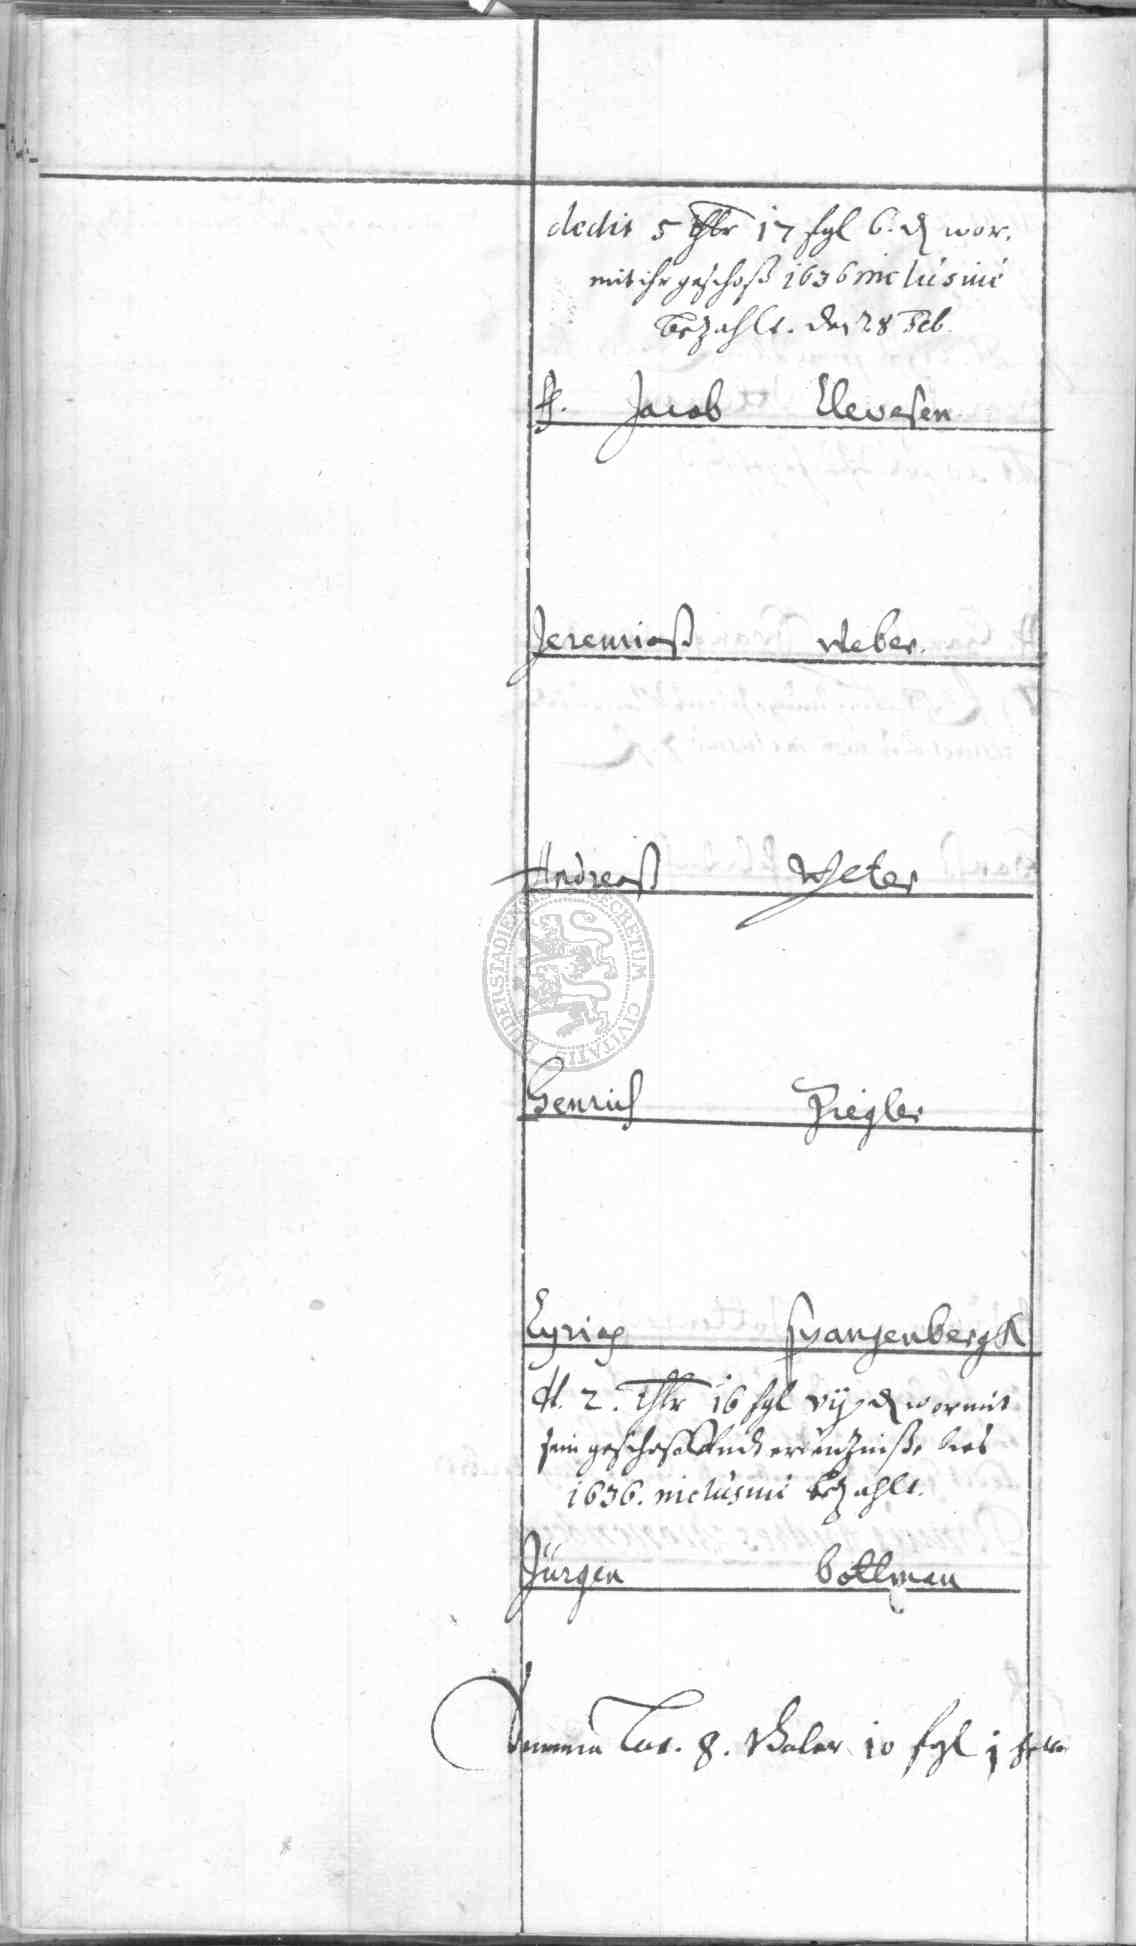 dedit 5 thlr 17 sgl 6. ₰ wor,
mit ihr geschoß 1636 inclusive
bezahlt. den 28 Feb.
H. Jacob Clevesen
Jeremiaß Weber.
Andreaß Peter
SECRETUM CIVITATIS DUDERSTADIENSIS
Henrich Ziegler
Cyriax Spangenbergk
dt. 2. thlr 16 sgl vij ₰ wormit
sein geschoß bes
1636. inclusive bezahlt.
Jürgen Bottman
Summa Lat. 8. thaler 10 sgl j